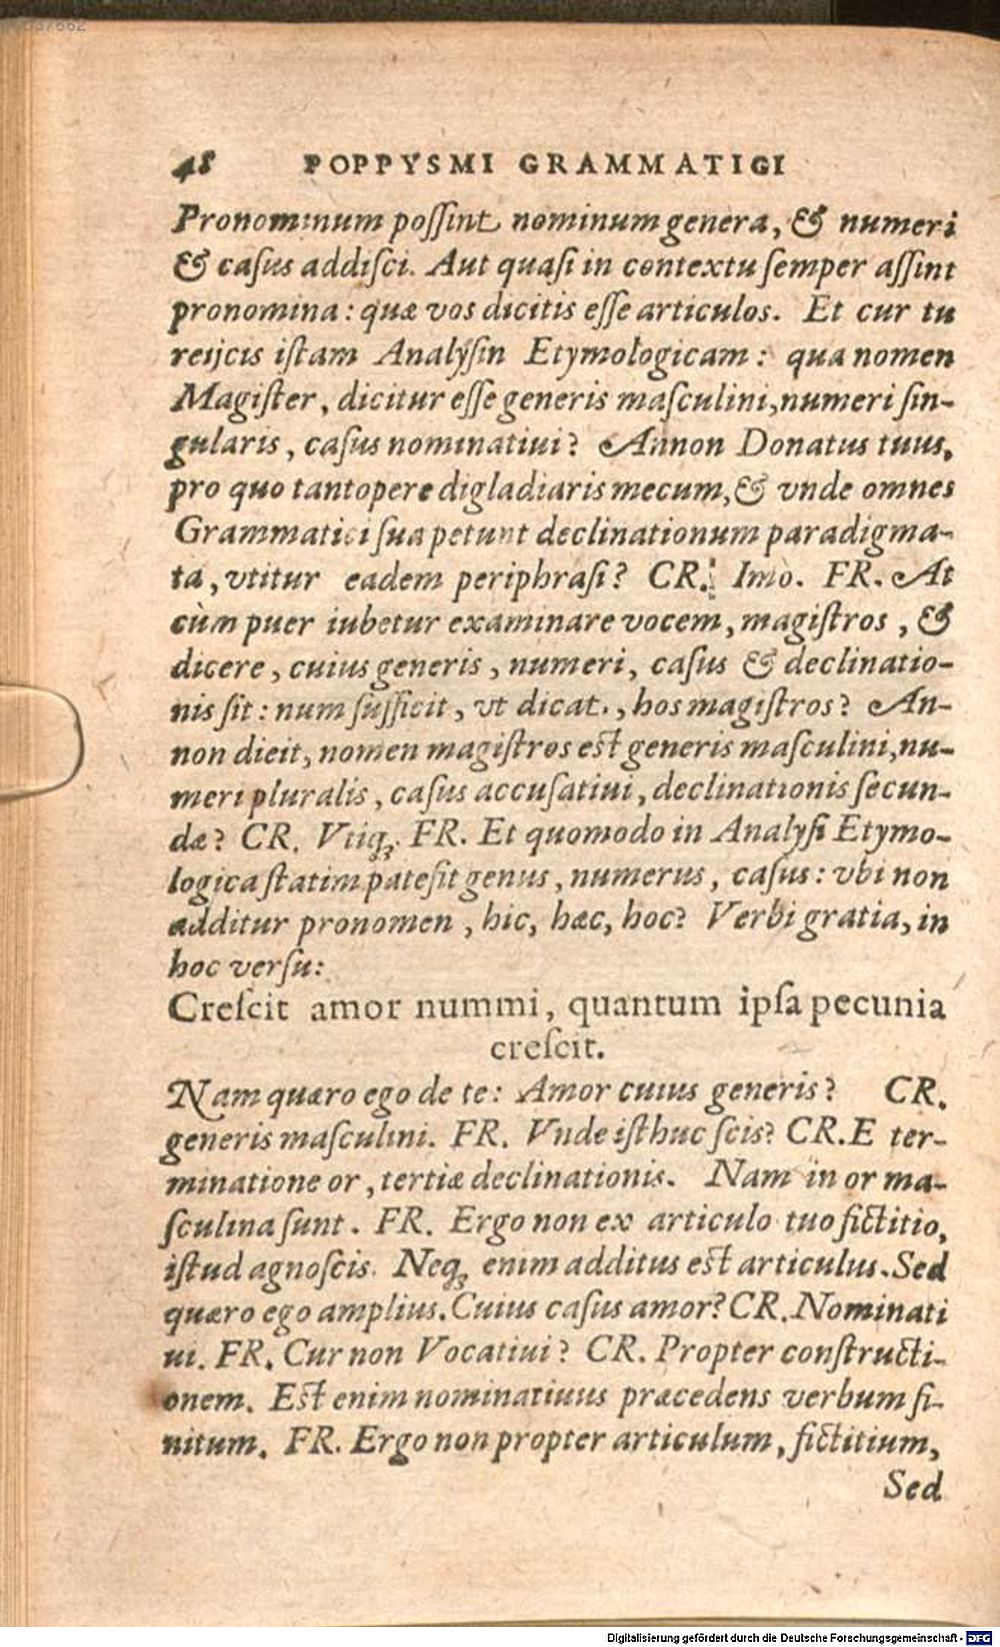 48 POPPYSMI GRAMMATIGI
Pronominum poſſint nominum genera, & numeri
& caſus addiſci. Aut quaſi in contextu ſemper aſſint
pronomina: quæ vos dicitis eſſe articulos. Et cur tu
reijcis iſtam Analyſin Etymologicam: qua nomen
Magiſter, dicitur eſſe generis maſculini, numeri ſin-
gularis, caſus nominatiui? Annon Donatus tuus,
pro quo tantopere digladiaris mecum, & vnde omnes
Grammatici ſua petunt declinationum paradigma-
ta, vtitur eadem periphraſi? CR. Imò. FR. At
cùm puer iubetur examinare vocem, magiſtros, &
dicere, cuius generis, numeri, caſus & declinatio-
nis ſit: num ſufficit, vt dicat., hos magiſtros? An-
non dieit, nomen magiſtros eſt generis maſculini, nu-
meri pluralis, caſus accuſatiui, declinationis ſecun-
dæ? CR. Vtiq;. FR. Et quomodo in Analyſi Etymo-
logica ſtatim pateſit genus, numerus, caſus: vbi non
additur pronomen, hic, hæc, hoc? Verbi gratia, in
hoc verſu:
Creſcit amor nummi, quantum ipſa pecunia
creſcit.
Nam quæro ego de te: Amor cuius generis? CR.
generis maſculini. FR. Vnde iſthuc ſcis? CR. E ter-
minatione or, tertiæ declinationis. Nam in or ma-
ſculina ſunt. FR. Ergo non ex articulo tuo fictitio,
iſtud agnoſcis. Neq; enim additus eſt articulus. Sed
quæro ego amplius. Cuius caſus amor? CR. Nominati
ui. FR. Cur non Vocatiui? CR. Propter conſtructi-
onem. Eſt enim nominatiuus præcedens verbum fi-
nitum. FR. Ergo non propter articulum, fictitium,
Sed
Digitalisierung gefördert durch die Deutsche Forschungsgemeinschaft - DFG